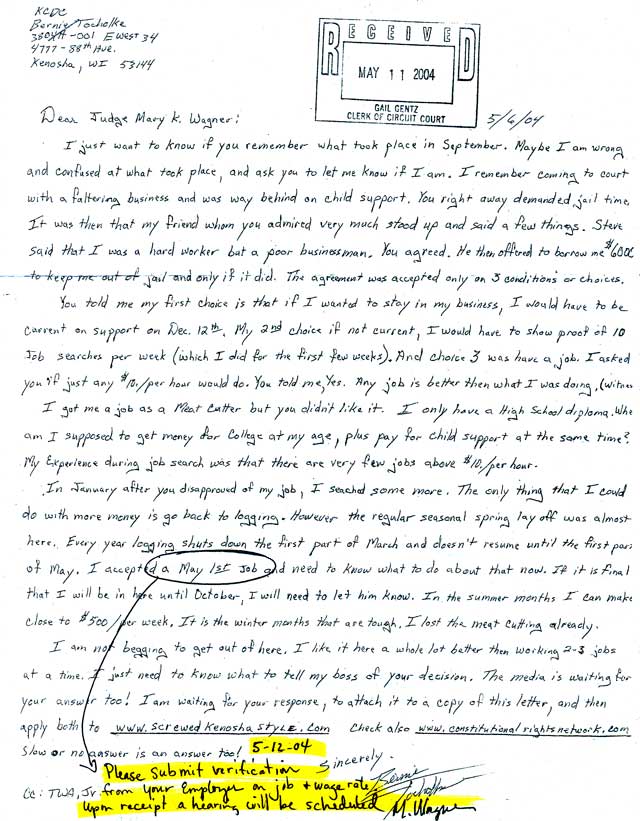 KCDC
Bernie Tocholke
-001 E West 34
4777-88th Ave.
Kenosha, WI 53144
RECEIVED
MAY 11 2004
GAIL GENTZ
CLERK OF CIRCUIT COURT
5/6/04
Dear Judge Mary K. Wagner:
I just want to know if you remember what took place in September. Maybe I am wrong
and confused at what took place, and ask you to let me know if I am. I remember coming to court
with a faltering business and was way behind on child support. You right away demanded jail time.
It was then that my friend whom you admired very much stood up and said a few things. Steve
said that I was a hard worker but a poor businessman. You agreed. He then offered to borrow me
to keep me out of jail and only if it did. The agreement was accepted only on 3 conditions or choices.
You told me my first choice is that if I wanted to stay in my business, I would have to be
current on support on Dec. 12th. My 2nd choice if not current, I would have to show proof of 10
Job searches per week (which I did for the first few weeks). And choice 3 was have a job. I asked
you if just any $10./per hour would do. You told me, Yes. Any job is better then what I was doing,
I got me a job as a Meat Cutter but you didn't like it. I only have a High School diploma.
am I supposed to get money for College at my age, plus pay for child support at the same time?
My Experience during job search was that there are very few jobs above $10./per hour.
In January after you disapproved of my job, I seached some more. The only thing that I could
do with more money is go back to logging. However the regular seasonal spring lay off was almost
here. Every year logging shuts down the first part of March and doesn't resume until the first part
of May. I accepted a May 1st Job and need to know what to do about that now. If it is final
that I will be in here until October, I will need to let him know. In the summer months I can make
close to $500/per week. It is the winter months that are tough. I lost the meat cutting already.
I am not begging to get out of here. I like it here a whole lot better then working 2-3 jobs
at a time. I just need to know what to tell my boss of your decision. The media is waiting for
your answer too! I am waiting for your response, to attach it to a copy of this letter, and then
apply both to www.screwedkenoshastyle.com Check also www.constitutionalrightsnetwork.com
Slow or no answer is an answer too! 5-12-04
Sincerely,
Please submit verification
Bernie Tocholke
Cc: TWA, Jr. from your Employer on job + wage rate
upon receipt a hearing will be scheduled M. Wagner